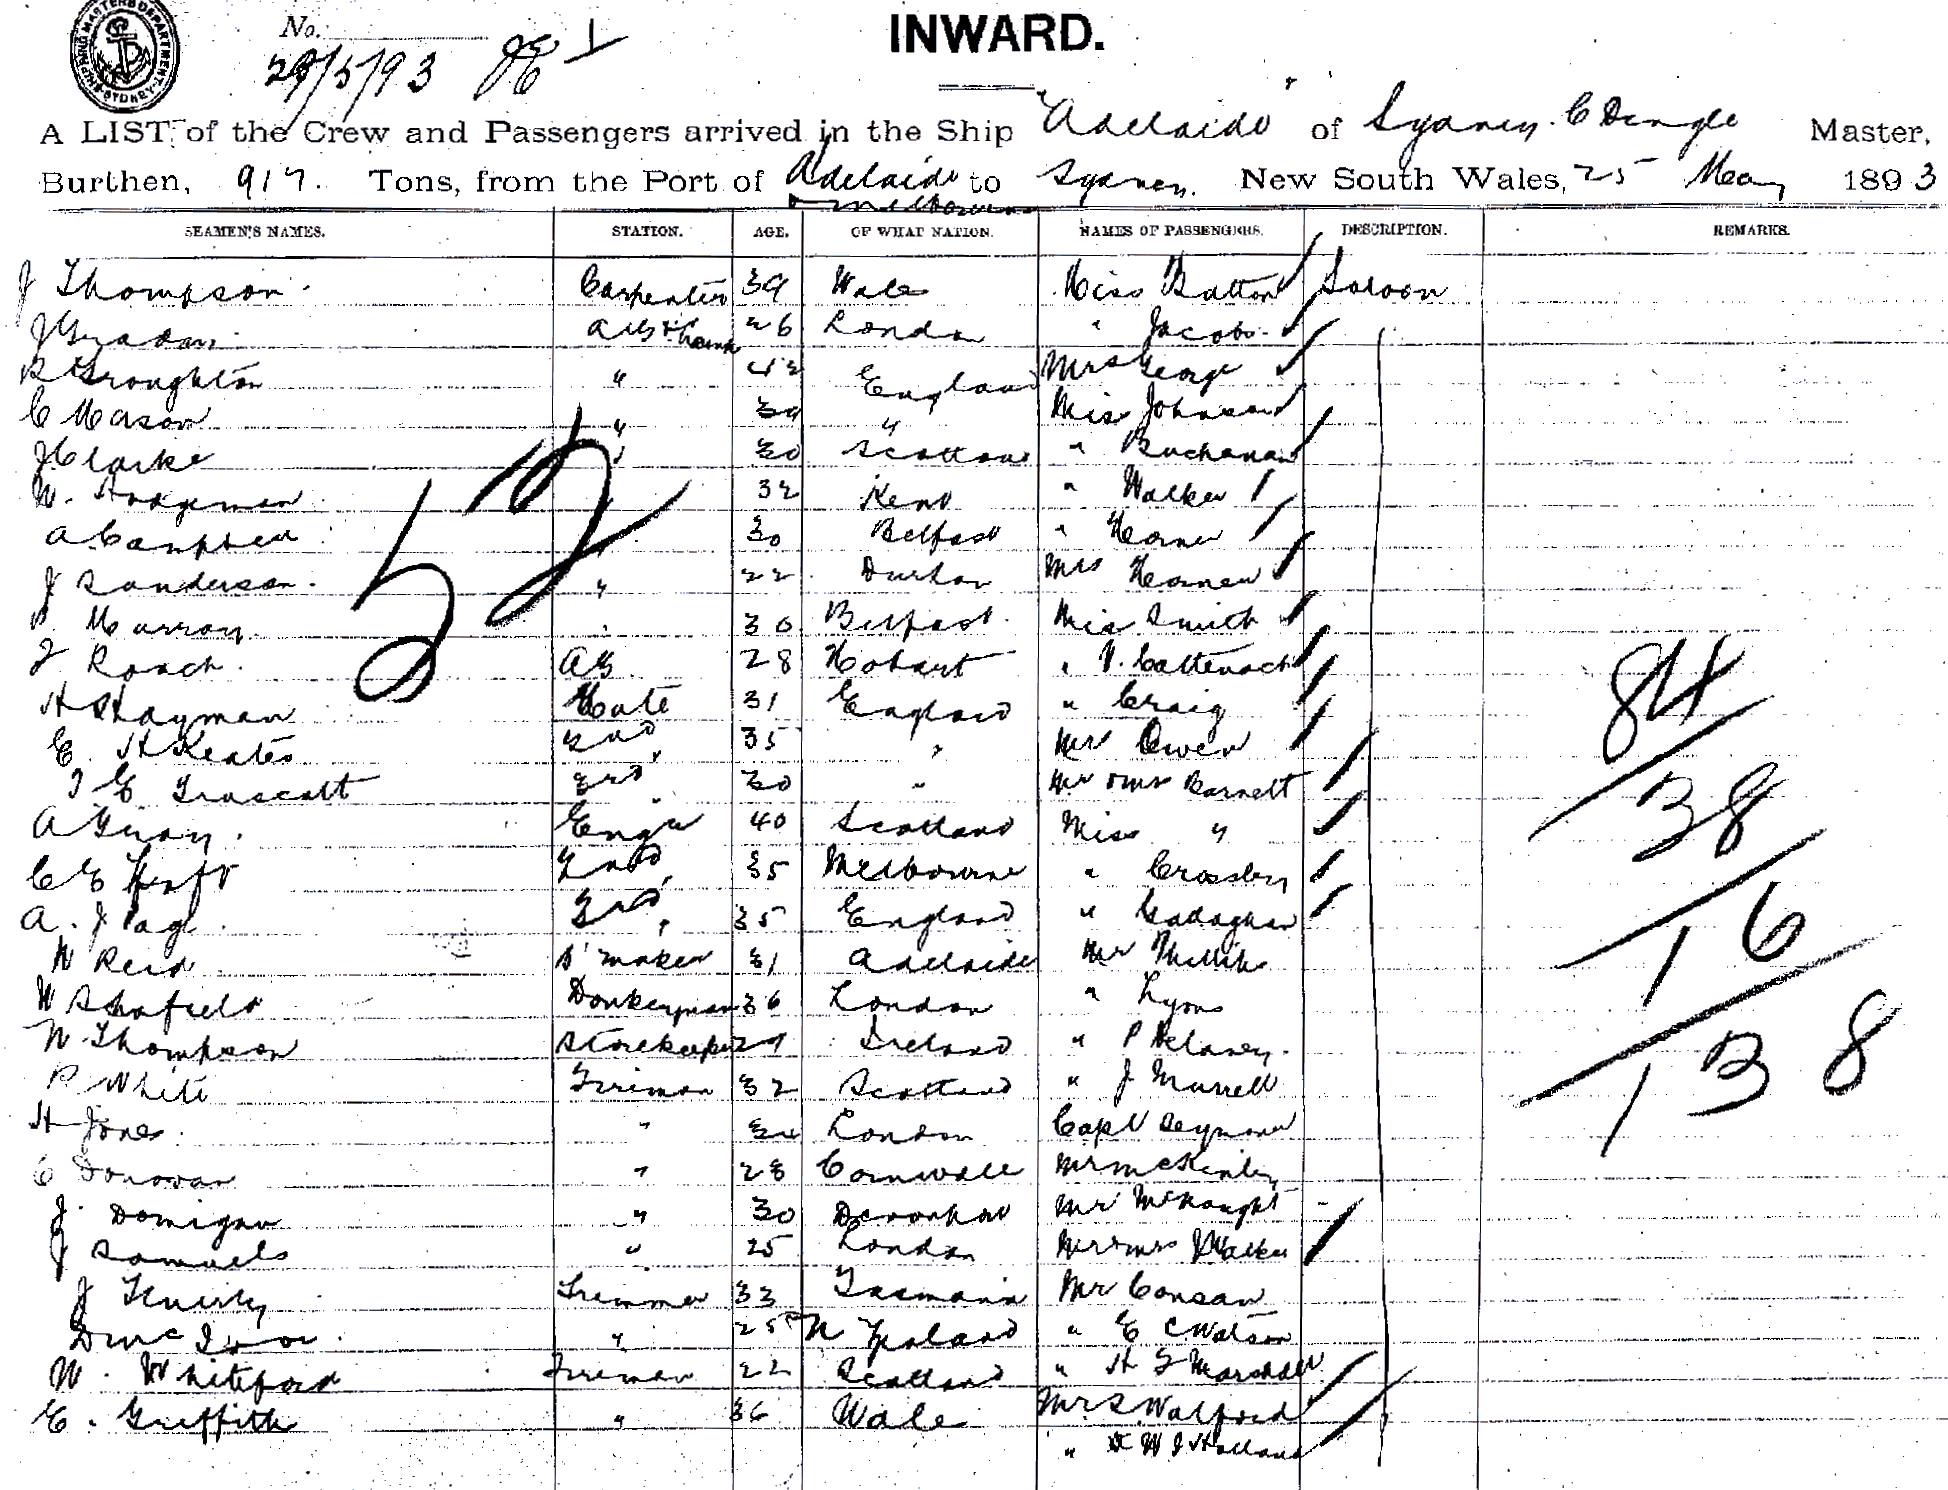 SHIPPING MASTERS DEPARTMENT SYDNEY
No.
INWARD.
29/5/93
A LIST of the Crew and Passengers arrived in the Ship "Adelaide" of Sydney. C Dingle Master,
Burthen, 917. Tons, from the Port of Adelaide to Sydney. New South Wales, 25 May 1893
& Melbourne
SEAMEN'S NAMES. STATION. AGE. OF WHAT NATION. NAMES OF PASSENGERS. DESCRIPTION. REMARKS.
J Thompson Carpenter 39 Wales Miss Batton Saloon
J 26 London " Jacobs
R Broughton " 42 England Mrs George
C Mason " 39 " Miss Johnson
J Clarke " 30 Scotland " Buchanan
W. Hodgeman " 32 Kent " Walker
A Campbell " 30 Belfast " Horner
J Sanderson " 22 Durham Mrs Horner
Murray " 30 Belfast Miss Smith
Roach AB 28 Hobart " V. Cattenach
H Shayman Mate 31 England " Craig
E. H Keates 2nd " 35 " Mr Owen
T E Truscott 3rd " 30 " Mr & Mrs Barnett
A Gray Engr 40 Scotland Miss "
C E 2nd " 35 Melbourne " Crossley
A. J Page 3rd " 35 England " Gadaghan
W Reid S'maker 31 Adelaide Mr
W Schofield Donkeyman 36 London " Lyons
W Thompson Storekeeper 29 Ireland " P Delaney
P White Fireman 32 Scotland " J Murrell
H Jones " London Capt Seymour
C Donovan " 28 Cornwall Mr McKinley
J. Domigan " 30 Devonport Mr McNaught
J Samuels " 25 London Mr & Mrs J Walker
J Trimmer 33 Tasmania Mr
D Mc " 25 N Zealand " E C Watson
W. Whiteford Fireman 22 Scotland " H F Marshall
E. Griffith " 36 Wales Mr S Walford
" W J Holland
52
84
38
16
138